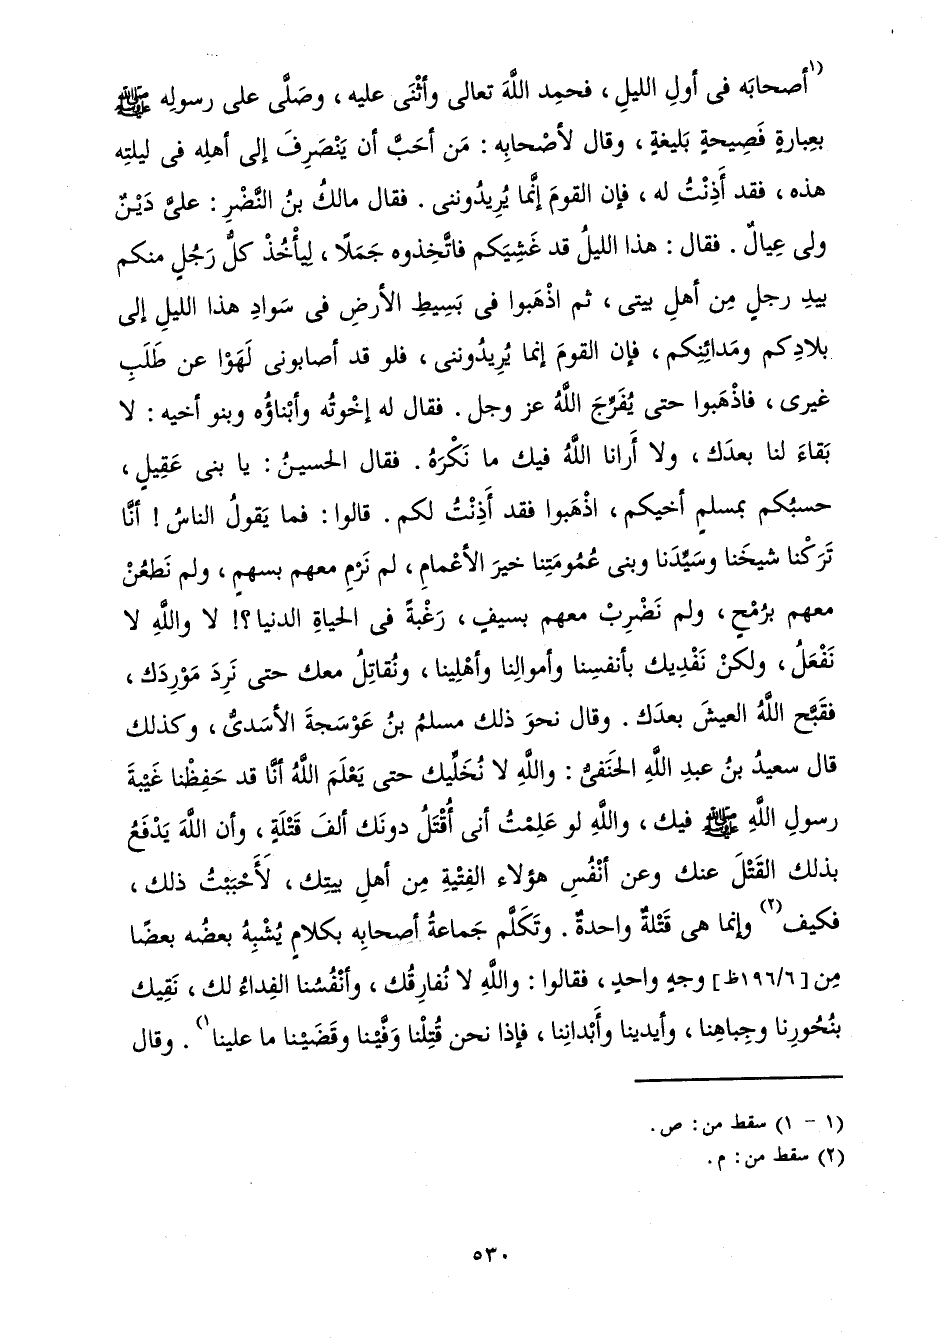 (١أصحابَه فى أولِ الليلِ ، فحمِد اللَّهَ تعالى وأثْنَى عليه ، وصَلَّى على رسولِه ﷺ
بعِبارةٍ فَصِيحةٍ بَليغةٍ ، وقال لأصْحابِه : مَن أحَبَّ أن يَنْصَرِفَ إلى أهلِه فى ليلتِه
هذه ، فقد أَذِنْتُ له ، فإن القومَ إنَّما يُرِيدُوننى . فقال مالكُ بنُ النَّضْرِ : علىَّ دَيْنٌ
ولى عِيالٌ . فقال : هذا الليلُ قد غَشِيَكم فاتَّخِذوه جَمَلًا ، لِيأْخُذْ كلُّ رَجُلٍ منكم
بيدِ رجلٍ مِن أهلِ بيتى ، ثم اذْهَبوا فى بَسِيطِ الأرضِ فى سَوادِ هذا الليلِ إلى
بلادِكم ومَدائِنِكم ، فإن القومَ إنما يُرِيدُوننى ، فلو قد أصابونى لَهَوْا عن طَلَبِ
غيرى ، فاذْهَبوا حتى يُفَرِّجَ اللَّهُ عز وجل . فقال له إخْوتُه وأبْناؤُه وبنو أخيه : لا
بَقاءَ لنا بعدَك ، ولا أَرانا اللَّهُ فيك ما نَكْرَهُ . فقال الحسينُ : يا بنى عَقِيلٍ ،
حسبُكم بمسلمٍ أخيكم ، اذْهَبوا فقد أَذِنْتُ لكم . قالوا : فما يَقولُ الناسُ ! أنَّا
تَرَكْنا شيخَنا وسَيِّدَنا وبنى عُمُومَتِنا خيرَ الأعْمامِ ، لم نَرْمِ معهم بسهمٍ ، ولم نَطعُنْ
معهم برُمْحٍ ، ولم نَضْرِبْ معهم بسيفٍ ، رَغْبةً فى الحياةِ الدنيا ؟! لا واللَّهِ لا
نَفْعَلُ ، ولكنْ نَفْدِيك بأنفسِنا وأموالِنا وأهْلِينا ، ونُقاتِلُ معك حتى نَرِدَ مَوْرِدَك ،
فقَبَّح اللَّهُ العيشَ بعدَك . وقال نحوَ ذلك مسلمُ بنُ عَوْسَجةَ الأسَدىُّ ، وكذلك
قال سعيدُ بنُ عبدِ اللَّهِ الحَنَفىُّ : واللَّهِ لا نُخَلِّيك حتى يَعْلَمَ اللَّهُ أنَّا قد حَفِظْنا غَيْبةَ
رسولِ اللَّهِ ﷺ فيك ، واللَّهِ لو عَلِمْتُ أنى أُقْتَلُ دونَك ألفَ قَتْلَةٍ ، وأن اللَّهَ يَدْفَعُ
بذلك القَتْلَ عنك وعن أنْفُسِ هؤلاء الفِتْيةِ مِن أهلِ بيتِك ، لَأَحْبَبْتُ ذلك ،
فكيف(٢) وإنما هى قَتْلةٌ واحدةٌ . وتَكَلَّم جَماعةُ أصحابِه بكلامٍ يُشْبِهُ بعضُه بعضًا
مِن [١٩٦/٦ظ] وجهٍ واحدٍ ، فقالوا : واللَّهِ لا نُفارِقُك ، وأنْفُسُنا الفِداءُ لك ، نَقِيك
بنُحُورِنا وجِباهِنا ، وأيدينا وأَبْدانِنا ، فإذا نحن قُتِلْنا وَفَّيْنا وقَضَيْنا ما علينا١) . وقال
(١ - ١) سقط من : ص .
(٢) سقط من : م .
٥٣٠